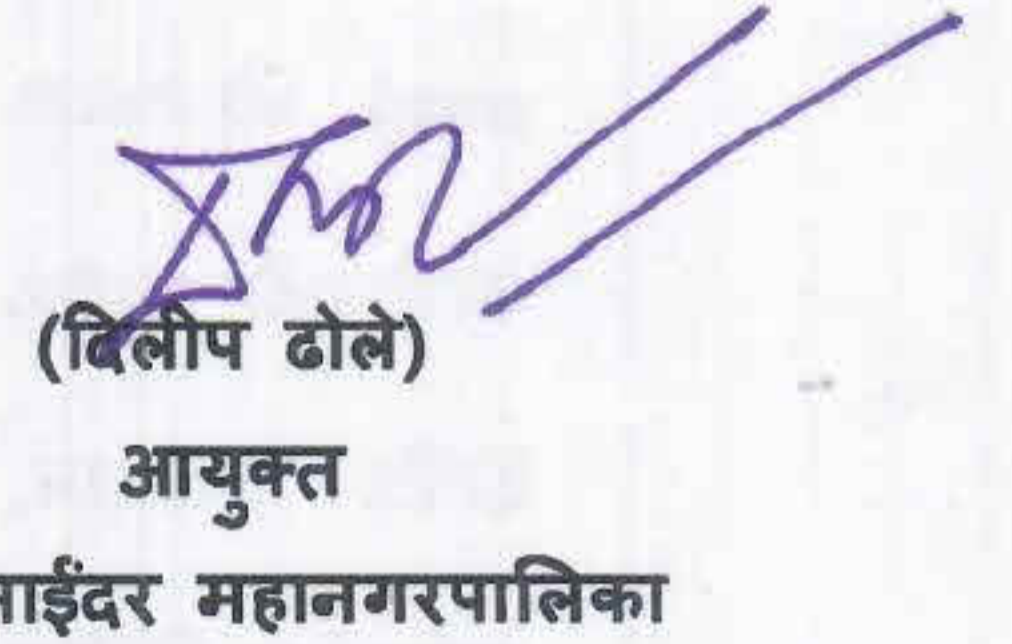 (दिलीप ढोले)
आयुक्त
महानगरपालिका